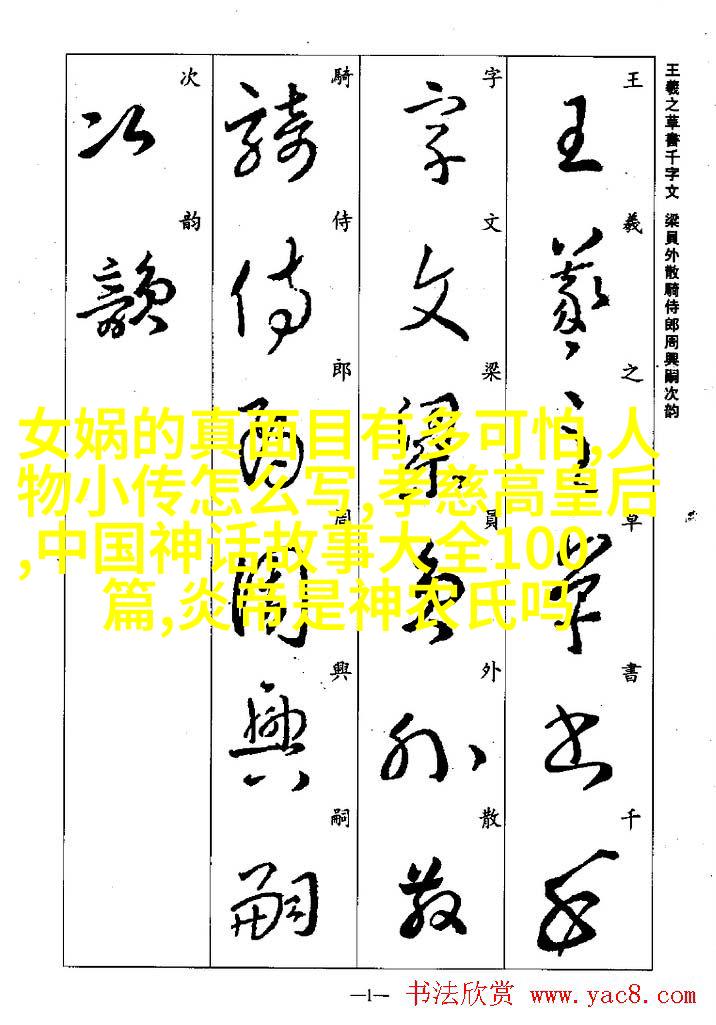 王羲之草書千字文 梁員外散騎侍郎周興嗣次韵
王羲之草書千
字文梁員外散
騎侍郎周興嗣
次韵
王羲之草書千
字文梁員外散
騎侍郎周興嗣
次韻
女娲的真面目有多可怕,人
物小传怎么写,孝慈高皇后
,中国神话故事大全100
篇,炎帝是神农氏吗
—1—
书法欣赏 www.yac8.com